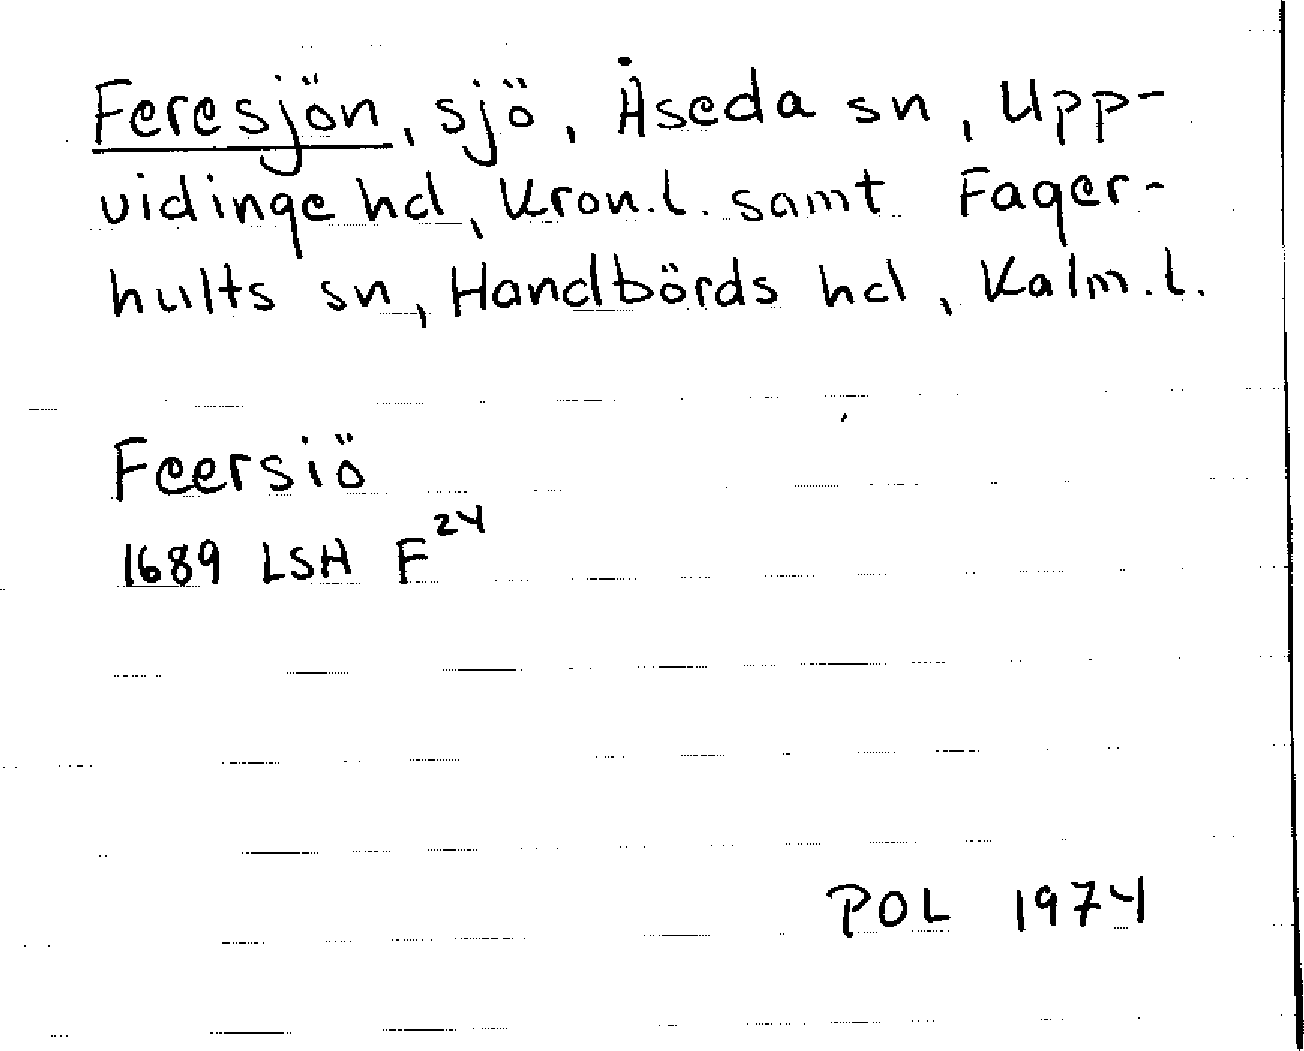 Feresjön, sjö, Åseda sn, Upp-
vidinge hd, Kron.l. samt Fager-
hults sn, Handbörds hd, Kalm.l.
Feersiö
1689 LSH F24
POL 1974